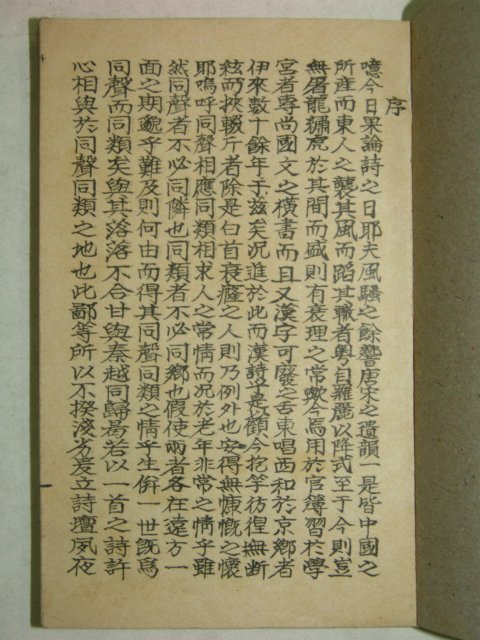 序
噫今日果論詩之日耶夫風騷之餘響唐宋之遺韻一是皆中國之
所産而東人之襲其風而蹈其職者粤自羅麗以降式至于今則豈
無屠龍繡虎於其間而盛則有衰理之常歟今焉用於官簿習於學
宮者專尚國文之橫書而且又漢字可廢之舌東唱西和於京鄕者
伊來數十餘年于玆矣况進於此而漢詩乎是以顧今抱竽彷徨無断
絃而挾輟斤者除是白首衰癃之人則乃例外也安得無慷慨之懷
耶嗚呼同聲相應同類相求人之常情而况於老年非常之情乎雖
然同聲者不必同隣也同類者不必同鄕也假使兩者各在遠方一
面之期邈乎難及則何由而得其同聲同類之情乎生倂一世旣爲
同聲而同類矣與其落落不合甘與秦越同歸曷若以一首之詩許
心相與於同聲同類之地也此鄙等所以不揆淺劣爰立詩壇夙夜